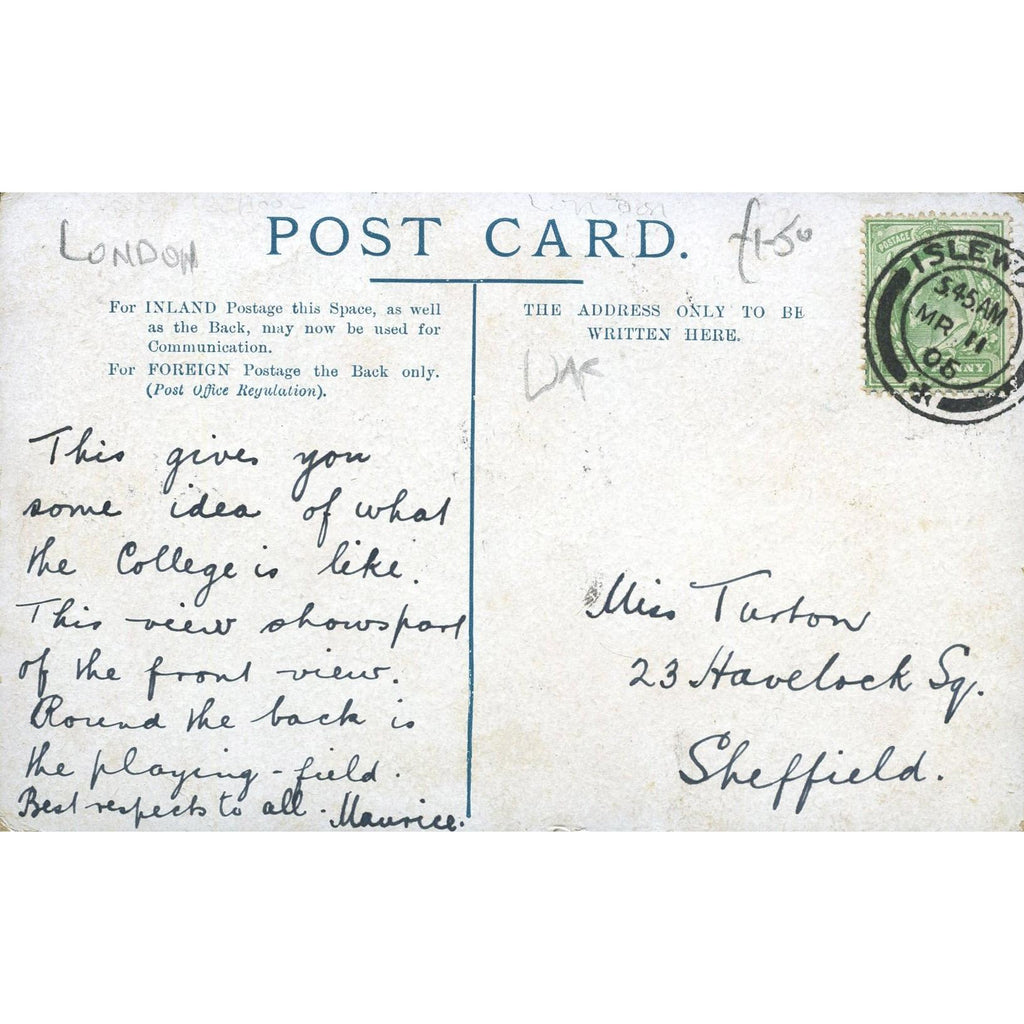 LONDON
POST CARD.
£1-50
For INLAND Postage this Space, as well
as the Back, may now be used for
Communication.
For FOREIGN Postage the Back only.
(Post Office Regulation).
THE ADDRESS ONLY TO BE
WRITTEN HERE.
POSTAGE
ISLEW
5.45AM
MR 11
06
NNY
This gives you
some idea of what
the College is like.
This view shows part
of the front view.
Round the back is
the playing-field.
Best respects to all. Maurice.
Miss Turton
23 Havelock Sq.
Sheffield.